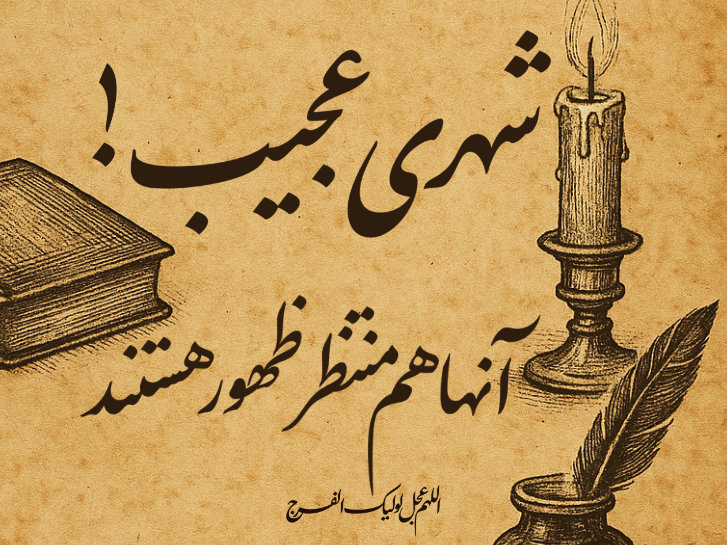 شهری عجیب!
آنها هم منتظر ظهور هستند
اللهم عجل لولیک الفرج